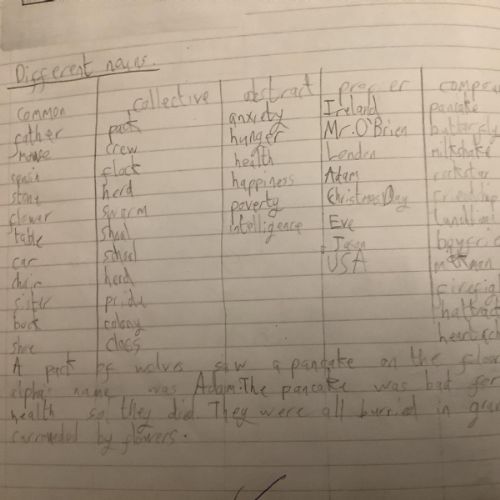 Different nouns.
common collective abstract proper compou
father pack anxiety Ireland pancake
mouse crew hunger Mr. O'Brien butterfly
flock health London milkshake
stone herd happiness Adam rockstar
flower swarm poverty Christmas Day friendship
table shoal intelligence Eve
car school Jason boyfrie
chair herd USA
sister pride firefig
book colony
shoe class
A pack of wolves saw a pancake on the floor
alpha's name was Adam. The pancake was bad for
health so they died. They were all burried in grav
surrounded by flowers.